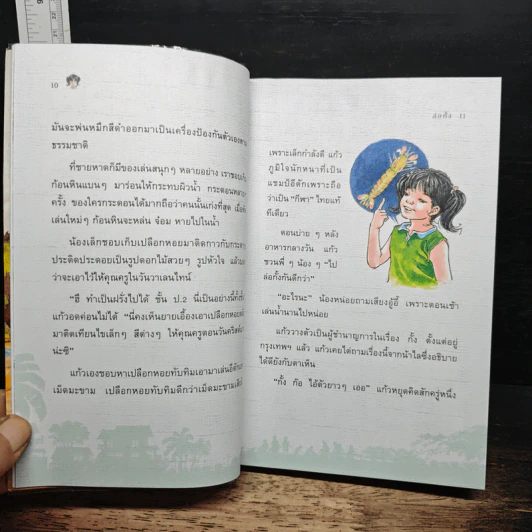 10
มันจะพ่นหมึกสีดำออกมาเป็นเครื่องป้องกันตัวเอง
ธรรมชาติ
ที่ชายหาดก็มีของเล่นสนุกๆ หลายอย่าง เราชอบ
ก้อนหินแบนๆ มาร่อนให้กระทบผิวน้ำ กระดอนหลาย
ครั้ง ของใครกระดอนได้มากถือว่าคนนั้นเก่งที่สุด เมื่อ
เล่นใหม่ๆ ก้อนหินจะหล่น จ๋อม หายไปในน้ำ
น้องเล็กชอบเก็บเปลือกหอยมาติดกาวกับ
ประดิดประดอยเป็นรูปดอกไม้สวยๆ รูปหัวใจ แล้ว
ว่าจะเอาไว้ให้คุณครูในวันวาเลนไทน์
"ฮึ ทำเป็นฝรั่งไปได้ ชั้น ป.2 นี่เป็นอย่างนี้
แก้วอดค่อนไม่ได้ "นี่คงเห็นยายเอื้องเอาเปลือกหอย
มาติดเทียนไขเล็กๆ สีต่างๆ ให้คุณครูตอนวันคริสต์
น่ะซิ"
แก้วเองชอบหาเปลือกหอยทับทิมเอามาเล่นอีตัก
เม็ดมะขาม เปลือกหอยทับทิมดีกว่าเม็ดมะขามเสีย
11
เพราะเล็กกำลังดี แก้ว
ภูมิใจนักหนาที่เป็น
แชมป์อีตักเพราะถือ
ว่าเป็น "กีฬา" ไทยแท้
ทีเดียว
ตอนบ่าย ๆ หลัง
อาหารกลางวัน แก้ว
ชวนพี่ ๆ น้อง ๆ "ไป
ล่อกั้งกันดีกว่า"
"อะไรนะ" น้องหน่อยถามเสียงอู้อี้ เพราะตอนเช้า
เล่นน้ำนานไปหน่อย
แก้ววางตัวเป็นผู้ชำนาญการในเรื่อง กั้ง ตั้งแต่อยู่
กรุงเทพฯ แล้ว แก้วเคยได้ถามเรื่องนี้จากน้าไลซึ่งอธิบาย
ได้ดียังกับตาเห็น
"กั้ง ก้อ ไอ้ตัวยาวๆ เออ" แก้วหยุดคิดสักครู่หนึ่ง